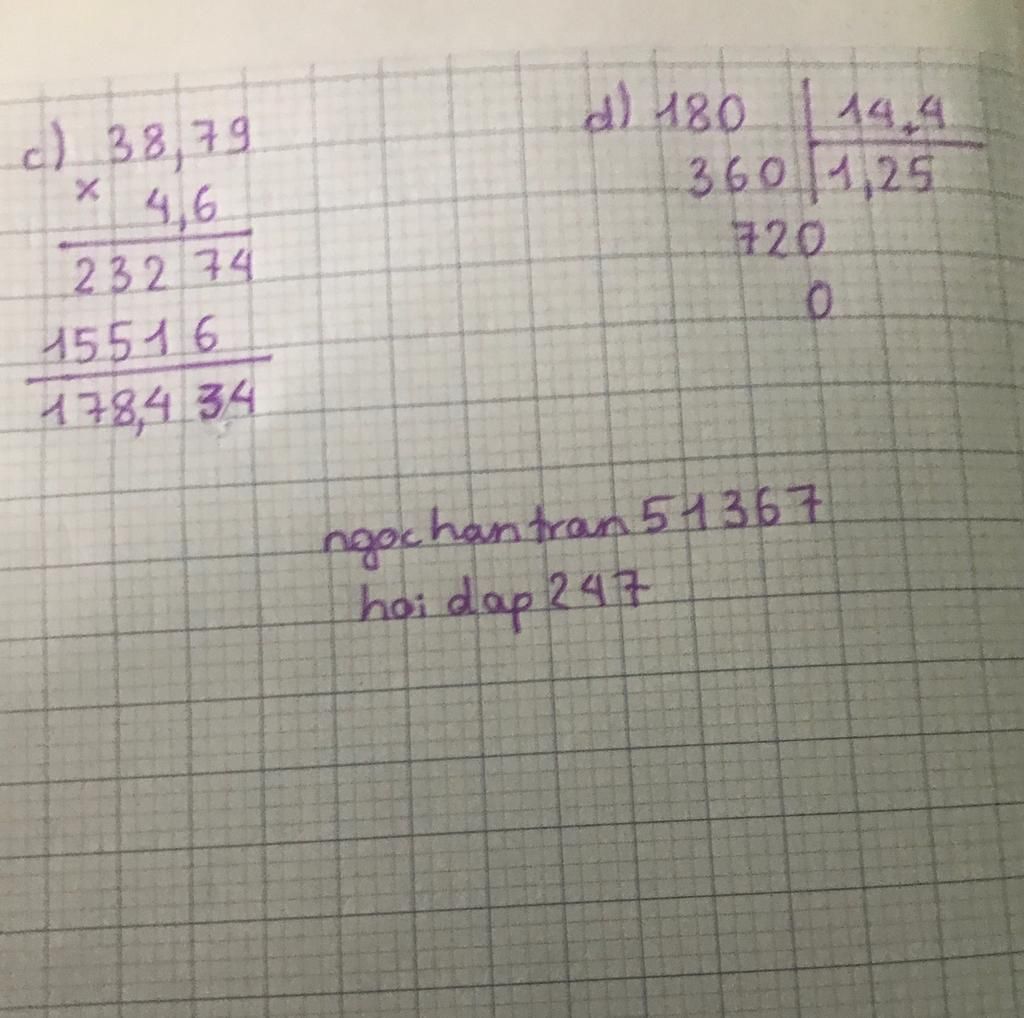 c) 38,79
× 4,6
232 74
1551 6
178,4 34
d) 180 | 14,4
360 | 1,25
720
0
ngochantran51367
hoi dap 247